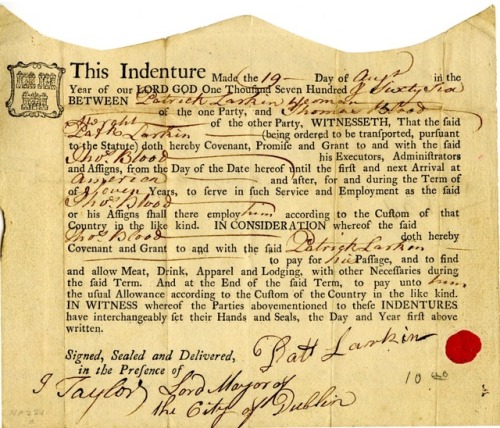 This Indenture Made the 19 Day of Augs in the
Year of our LORD GOD One Thousand Seven Hundred & Sixty Six
BETWEEN Patrick Larkin Yeoman
of the one Party, and Thomas Blood
of the other Party, WITNESSETH, That the said
Patk Larkin (being ordered to be transported, pursuant
to the Statute) doth hereby Covenant, Promise and Grant to and with the said
Thos Blood his Executors, Administrators
and Assigns, from the Day of the Date hereof until the first and next Arrival at
American and after, for and during the Term of
Seven Years, to serve in such Service and Employment as the said
Thos Blood
or his Assigns shall there employ him according to the Custom of that
Country in the like kind. IN CONSIDERATION whereof the said
Thos Blood doth hereby
Covenant and Grant to and with the said Patrick Larkin
to pay for his Passage, and to find
and allow Meat, Drink, Apparel and Lodging, with other Necessaries during
the said Term. And at the End of the said Term, to pay unto him
the usual Allowance according to the Custom of the Country in the like kind.
IN WITNESS whereof the Parties abovementioned to these INDENTURES
have interchangeably set their Hands and Seals, the Day and Year first above
written.
Signed, Sealed and Delivered,
in the Presence of
Patt Larkin
J Taylor Lord Mayor of
the City of Dublin